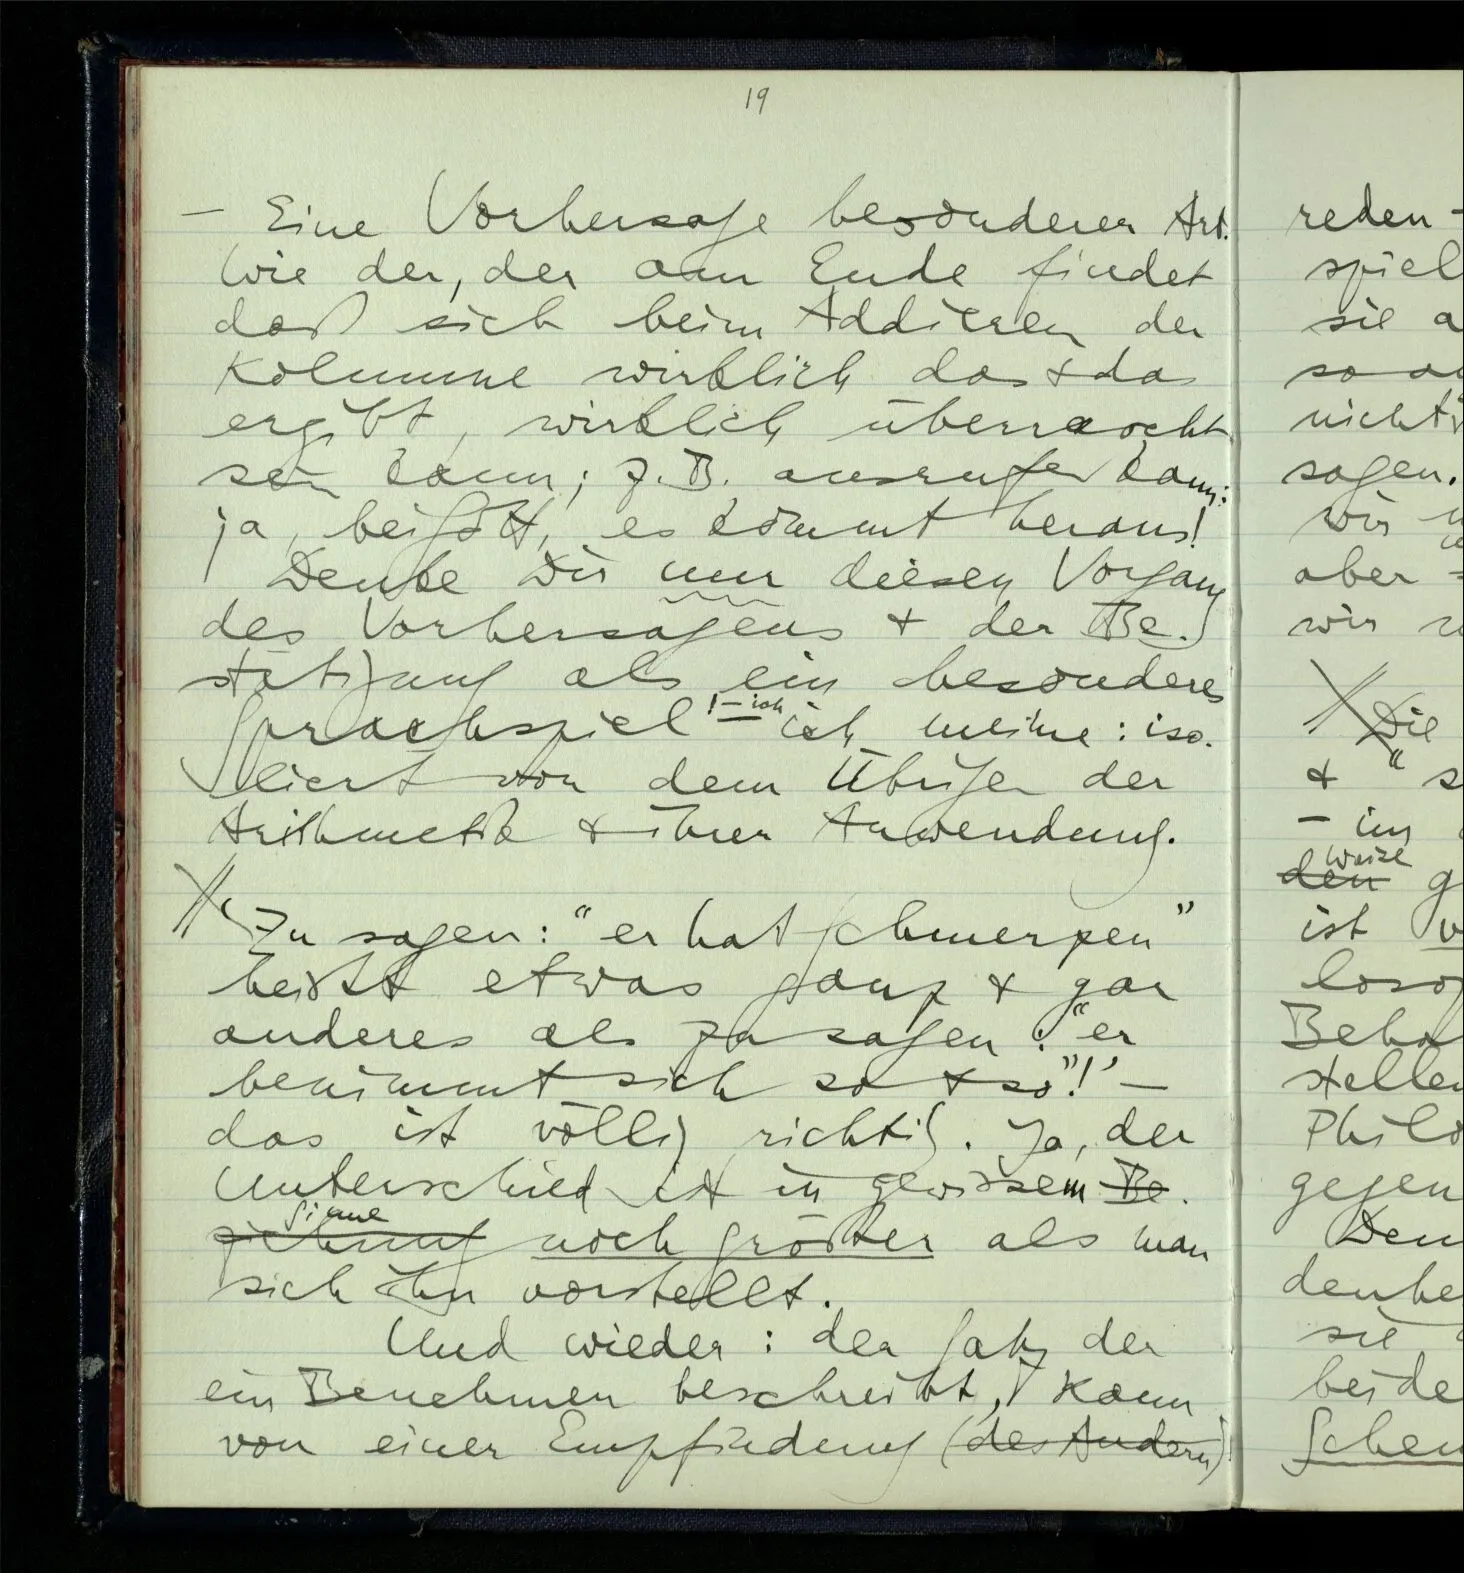 19
– Eine Vorhersage besonderer Art.
Wie der, der am Ende findet
daß sich beim Addieren der
Kolumne wirklich das & das
ergibt, wirklich überrascht
sein kann; z.B. ausrufen kann:
ja, bei Gott, es kommt heraus!
Denke Dir nur diesen Vorgang
des Vorhersagens & der Be-
stätigung als ein besonderes
Sprachspiel ! – ich ich meine: iso-
liert von dem Übrigen der
Arithmetik & ihrer Anwendung.
‘Zu sagen: “er hat Schmerzen”
heißt etwas ganz & gar
anderes als zu sagen: “er
benimmt sich so & so”!’ –
das ist völlig richtig. Ja, der
Unterschied ist in gewissem Be-
Sinne
ziehung noch größer als man
sich ihn vorstellt.
Und wieder: der Satz der
ein Benehmen beschreibt, kann
von einer Empfindung (des Andern)
reden –
spiel
sie a
so
nicht
sagen.
wir
aber
wir
Die
& “ s
– im
Weise
den g
ist
Beha
stellen
Philo
gegen
Den
denke
sie
beide